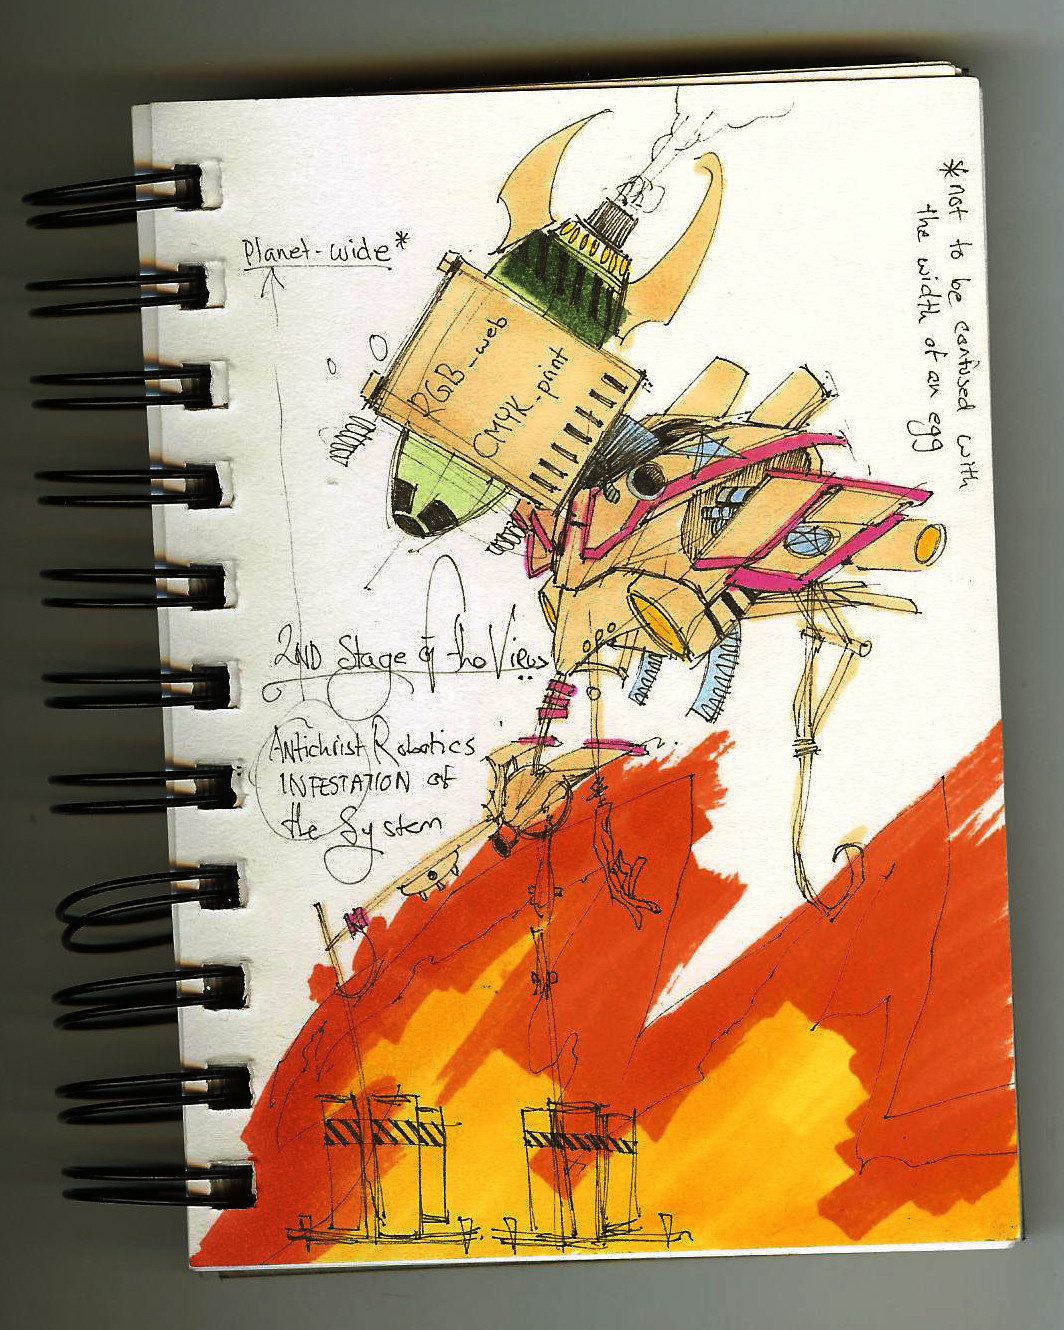 Planet-wide*
*not to be confused with
the width of an egg
RGB_web
CMYK_print
2ND Stage of the Virus
Antichrist Robotics
INFESTATION OF
the System